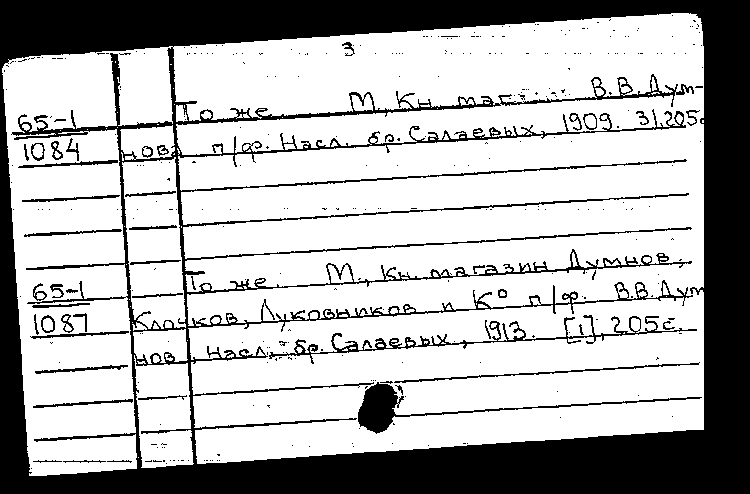 3
65-1 То же. М., Кн. маг. В.В.Дум-
1084 нова п/ф. Насл. бр. Салаевых, 1909. 31,205с
65-1 То же. М., Кн. магазин Думнов,
1087 Клочков, Луковников и К° п/ф. В.В.Дум
нов, насл. бр. Салаевых, 1913. [1], 205с.